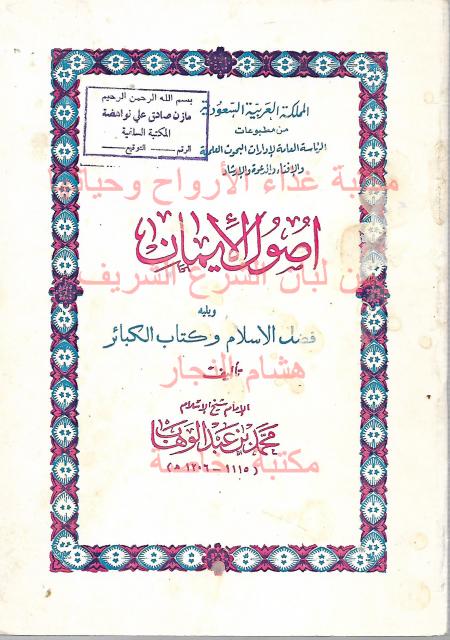 المملكة العربية السعودية
من مطبوعات
الرئاسة العامة لإدارات البحوث العلمية
والإفتاء والدعوة والإرشاد
بسم الله الرحمن الرحيم
مازن صادق علي
المكتبة السلفية
الرقم التوقيع
مكتبة غذاء الأرواح وحياة
أصول الإيمان
من لبان الشرع الشريف
ويليه
فضل الاسلام وكتاب الكبائر
تأليف
هشام النجار
الإمام شيخ الإسلام
محمد بن عبد الوهاب
مكتبة خاصة
(١١١٥ - ١٢٠٦ هـ)